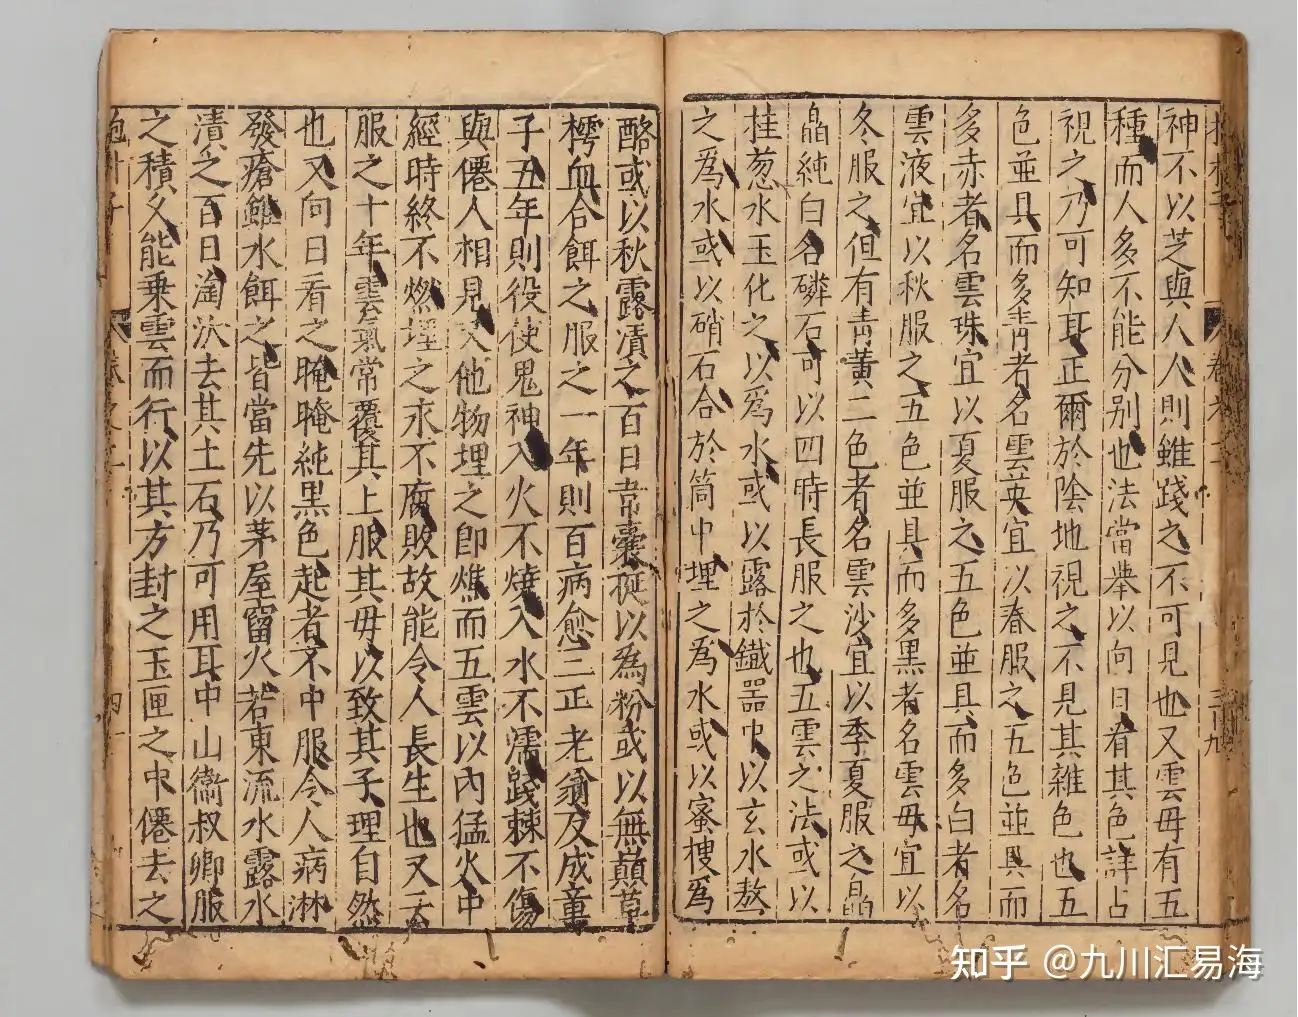 抱朴子
卷之二
三十九
神不以芝與人人則雖踐之不可見也又雲母有五
種而人多不能分别也法當舉以向日看其色詳占
視之乃可知耳正爾於陰地視之不見其雜色也五
色並具而多青者名雲英宜以春服之五色並具而
多赤者名雲珠宜以夏服之五色並具而多白者名
雲液宜以秋服之五色並具而多黑者名雲母宜以
冬服之但有青黄二色者名雲沙宜以季夏服之晶
晶純白名磷石可以四時長服之也五雲之法或以
桂葱水玉化之以爲水或以露於鐵器中以玄水熬
之爲水或以硝石合於筒中埋之爲水或以蜜溲爲
酪或以秋露漬之百日韋囊挻以為粉或以無巔草
樗血合餌之服之一年則百病愈三正老翁反成童
子五年則役使鬼神入火不燒入水不濡踐棘不傷
與僊人相見又他物埋之卽燋而五雲以內猛火中
經時終不燃埋之永不腐敗故能令人長生也又云
服之十年雲氣常覆其上服其母以致其子理自然
也又向日看之晻晻純黑色起者不中服令人病淋
發瘡雖水餌之皆當先以茅屋霤火若東流水露水
漬之百日淘汰去其土石乃可用耳中山衞叔卿服
之積久能乗雲而行以其方封之玉匣之中僊去之
抱朴子
卷之二
四十
知乎 @九川汇易海